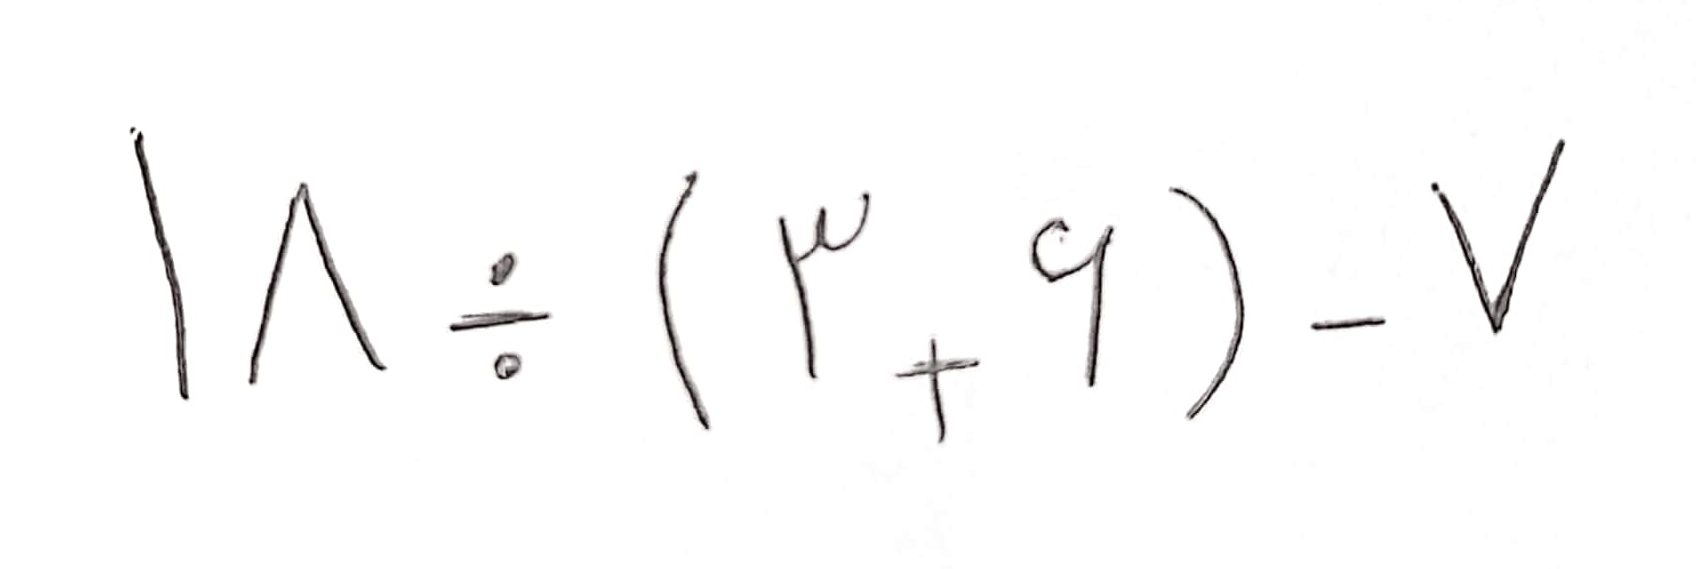 ۱۸ ÷ (۳ + ۶) - ۷